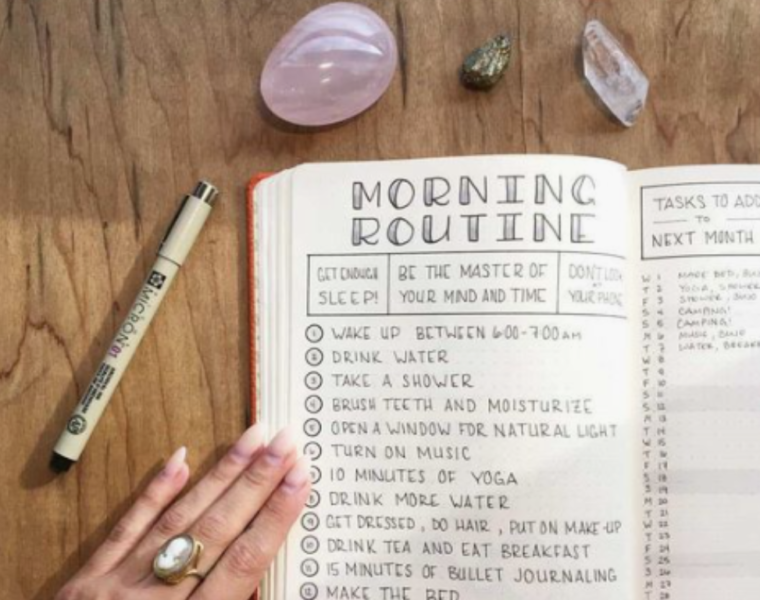 MICRON 01
MORNING
ROUTINE
GET ENOUGH
SLEEP!
BE THE MASTER OF
YOUR MIND AND TIME
DON'T LOOK
AT
YOUR PHONE
1 WAKE UP BETWEEN 6:00-7:00 AM
2 DRINK WATER
3 TAKE A SHOWER
4 BRUSH TEETH AND MOISTURIZE
5 OPEN A WINDOW FOR NATURAL LIGHT
6 TURN ON MUSIC
7 10 MINUTES OF YOGA
8 DRINK MORE WATER
9 GET DRESSED, DO HAIR, PUT ON MAKE-UP
10 DRINK TEA AND EAT BREAKFAST
11 15 MINUTES OF BULLET JOURNALING
12 MAKE THE BED
TASKS TO ADD
TO
NEXT MONTH
W 1 MAKE BED,
T 2 YOGA, SHOWER
F 3 SHOWER,
S 4 CAMPING!
S 5 CAMPING!
M 6 MUSIC,
T 7 WATER,
W 8
T 9
F 10
S 11
S 12
M 13
T 14
W 15
T 16
F 17
S 18
S 19
M 20
T 21
W 22
T 23
F 24
S 25
S 26
M 27
T 28